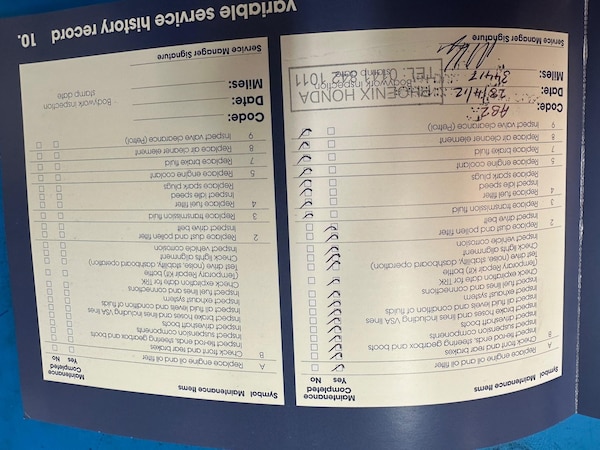 Symbol Maintenance Items
Maintenance
Completed
Yes No
A Replace engine oil and oil filter
B Check front and rear brakes
Inspect tierod ends, steering gearbox and boots
Inspect suspension components
Inspect driveshaft boots
Inspect brake hoses and lines including VSA lines
Inspect all fluid levels and condition of fluids
Inspect exhaust system
Inspect fuel lines and connections
Check expiration date for TRK
(Temporary Repair Kit) bottle
Test drive (noise, stability, dashboard operation)
Check lights alignment
Inspect vehicle corrosion
2 Replace dust and pollen filter
Inspect drive belt
3 Replace transmission fluid
4 Replace fuel filter
Inspect idle speed
Replace spark plugs
5 Replace engine coolant
7 Replace brake fluid
8 Replace air cleaner element
9 Inspect valve clearance (Petrol)
Code:
Date:
Miles: 34417
Bodywork inspection
stamp date
PHOENIX HONDA
TEL: 0141 842 1011
Service Manager Signature
Symbol Maintenance Items
Maintenance
Completed
Yes No
A Replace engine oil and oil filter
B Check front and rear brakes
Inspect tierod ends, steering gearbox and boots
Inspect suspension components
Inspect driveshaft boots
Inspect brake hoses and lines including VSA lines
Inspect all fluid levels and condition of fluids
Inspect exhaust system
Inspect fuel lines and connections
Check expiration date for TRK
(Temporary Repair Kit) bottle
Test drive (noise, stability, dashboard operation)
Check lights alignment
Inspect vehicle corrosion
2 Replace dust and pollen filter
Inspect drive belt
3 Replace transmission fluid
4 Replace fuel filter
Inspect idle speed
Replace spark plugs
5 Replace engine coolant
7 Replace brake fluid
8 Replace air cleaner element
9 Inspect valve clearance (Petrol)
Code:
Date:
Miles:
Bodywork inspection
stamp date
Service Manager Signature
variable service history record 10.